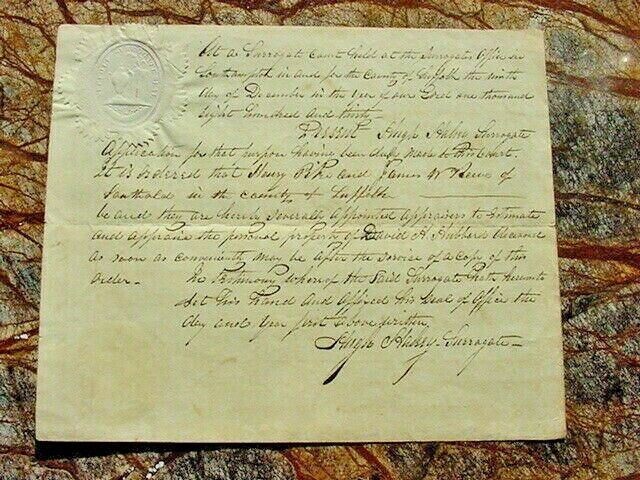 At a Surrogate Court held at the Surrogates Office in
Southampton in and for the County of Suffolk the ninth
day of December in the year of our Lord one thousand
Eight hundred and thirty -
Present Hugh Halsey Surrogate
Application for that purpose having been duly made to this Court.
It is ordered that Henry Pike and James W
Southold in the County of Suffolk
be and they are hereby severally appointed appraisers to Estimate
and appraise the personal property of David H. Hubbard deceased
as soon as conveniently may be after the service of a copy of this
order -
In testimony whereof the said Surrogate hath hereunto
Set his hand and affixed his Seal of Office the
day and year first above written.
Hugh Halsey - Surrogate -